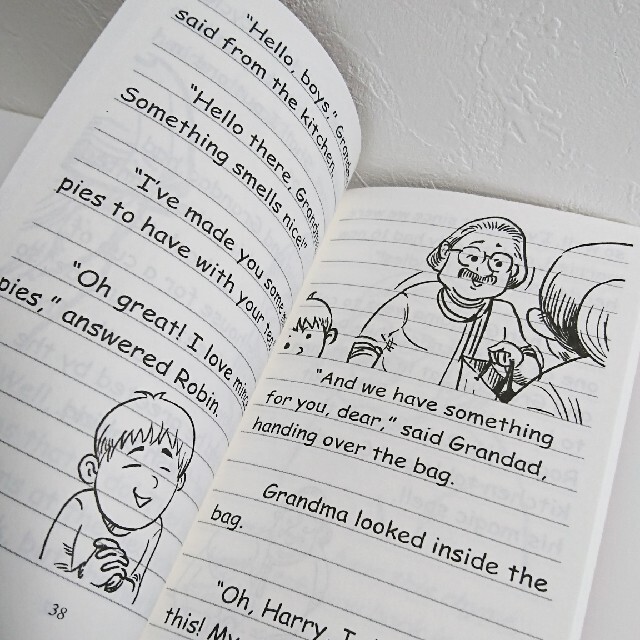 "Hello, boys,"
said from the kitchen.
"Hello there,
Something smells nice!"
"I've made you some
pies to have with your
"Oh great! I love
pies," answered Robin.
38
"And we have something
for you, dear," said Grandad,
handing over the bag.
Grandma looked inside the
bag.
"Oh, Harry,
this!